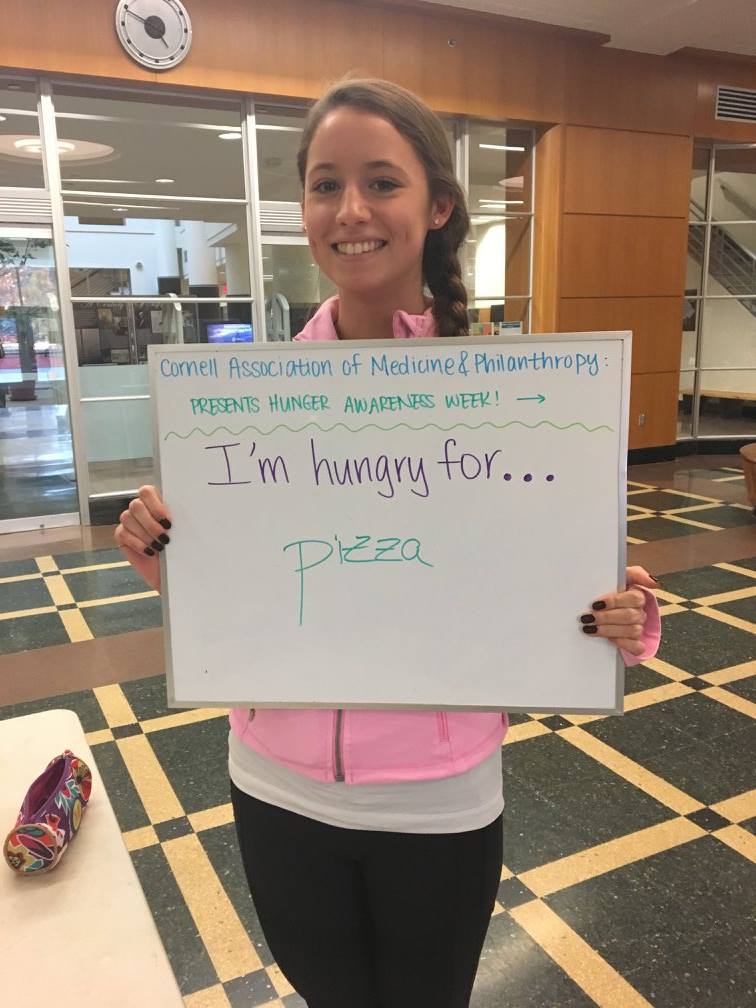 Cornell Association of Medicine & Philanthropy:
PRESENTS HUNGER AWARENESS WEEK! →
I'm hungry for...
pizza